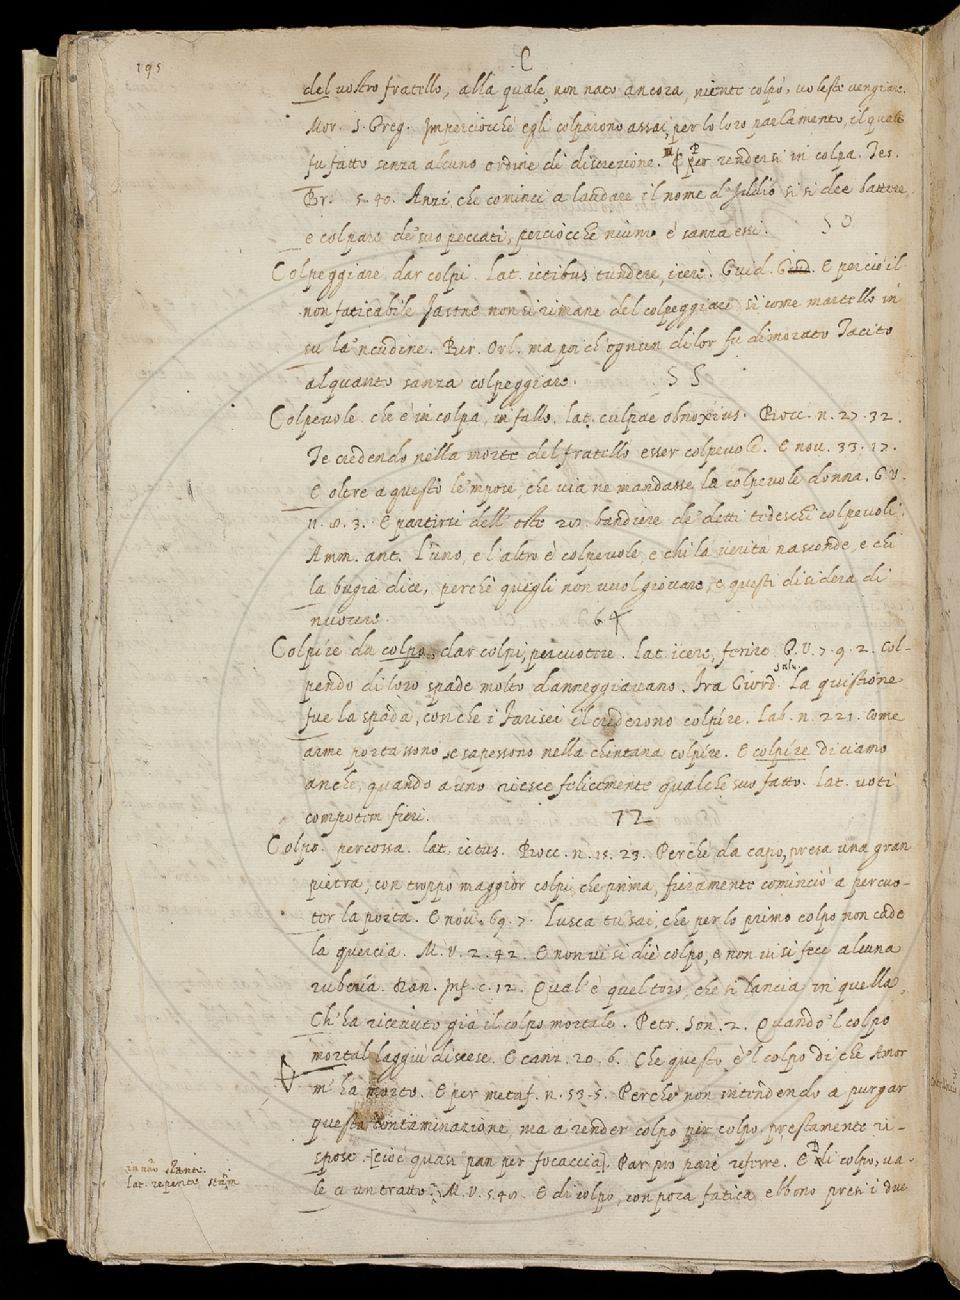 195
C
del vostro fratello, alla quale, non nato ancora, niente colpò, voleste vengiare.
Mor. S. Greg. Imperciocchè egli colpaiono assai, per lo loro parlamento, il quale
fu fatto senza alcuno ordine di discrezione. E per rendersi in colpa. Tes.
Br. 5. 40. Anzi, che cominci a laudare il nome d'Iddio si si dee battere,
e colpare de' suo peccati, perciocchè niuno è sanza essi. 50
Colpeggiare. dar colpi. Lat. ictibus tundere, icere. Guid. G. E perciò il
non faticabile Jasone non si rimane del colpeggiare si come martello in
su la 'ncudine. Ber. Orl. ma poi ch'ognun di lor fu dimorato Tacito
alquanto sanza colpeggiare. 55
Colpevole. che è in colpa, in fallo. lat. culpae obnoxius. Bocc. n. 27. 32.
Te credendo nella morte del fratello esser colpevole. E nov. 33. 17.
E oltre a questo le 'mpose che via ne mandasse la colpevole donna. G. V.
n. 8. 3. E partirsi dell' oste 200. bandiere de' detti tedeschi colpevoli.
Amm. ant. L'uno, e l'altro è colpevole, e chi la verità nasconde, e chi
la bugia dice, perchè quegli non vuol giovare, e questi disidera di
nuocere. 64
Colpíre da colpo, dar colpi, percuotere. Lat. icere, ferire. G. V. 7. 9. 2. Col-
pendo di loro spade molto danneggiavano. Fra Giord. Salu. La quistione
fue la spada, con che i Farisei il crederono colpíre. Lab. n. 221. Come
arme portassono se sapessono nella chintana colpíre. E colpíre diciamo
anche, quando a uno riesce felicemente qualche suo fatto. Lat. voti
compotem fieri. 72
Colpo. percossa. lat. ictus. Bocc. n. 15. 23. Perchè da capo, presa una gran
pietra, con troppo maggior colpi, che prima, fieramente cominciò a percuo-
ter la porta. E nov. 69. 7. Lusca tu sai, che per lo primo colpo non cade
la quercia. M. V. 2. 42. E non vi si diè colpo, e non vi si fece alcuna
ruberia. Dan. Inf. c. 12. Qual'è quel toro, che si lancia in quella,
Ch'ha ricevuto già il colpo mortale. Petr. Son. 2. Quando 'l colpo
mortal laggiù discese. E canz. 20. 6. Che questo è 'l colpo di che Amor
m'ha morto. E per metaf. n. 53. 5. Perchè non intendendo a purgar
questa contaminazione, ma a render colpo per colpo, prestamente ri-
spose. [cioè quasi pan per focaccia]. Par pro pari referre. E Di colpo, va-
le a un tratto. M. V. 5. 40. E di colpo, con poca fatica ebbono presi i due
Lat. repente, statim